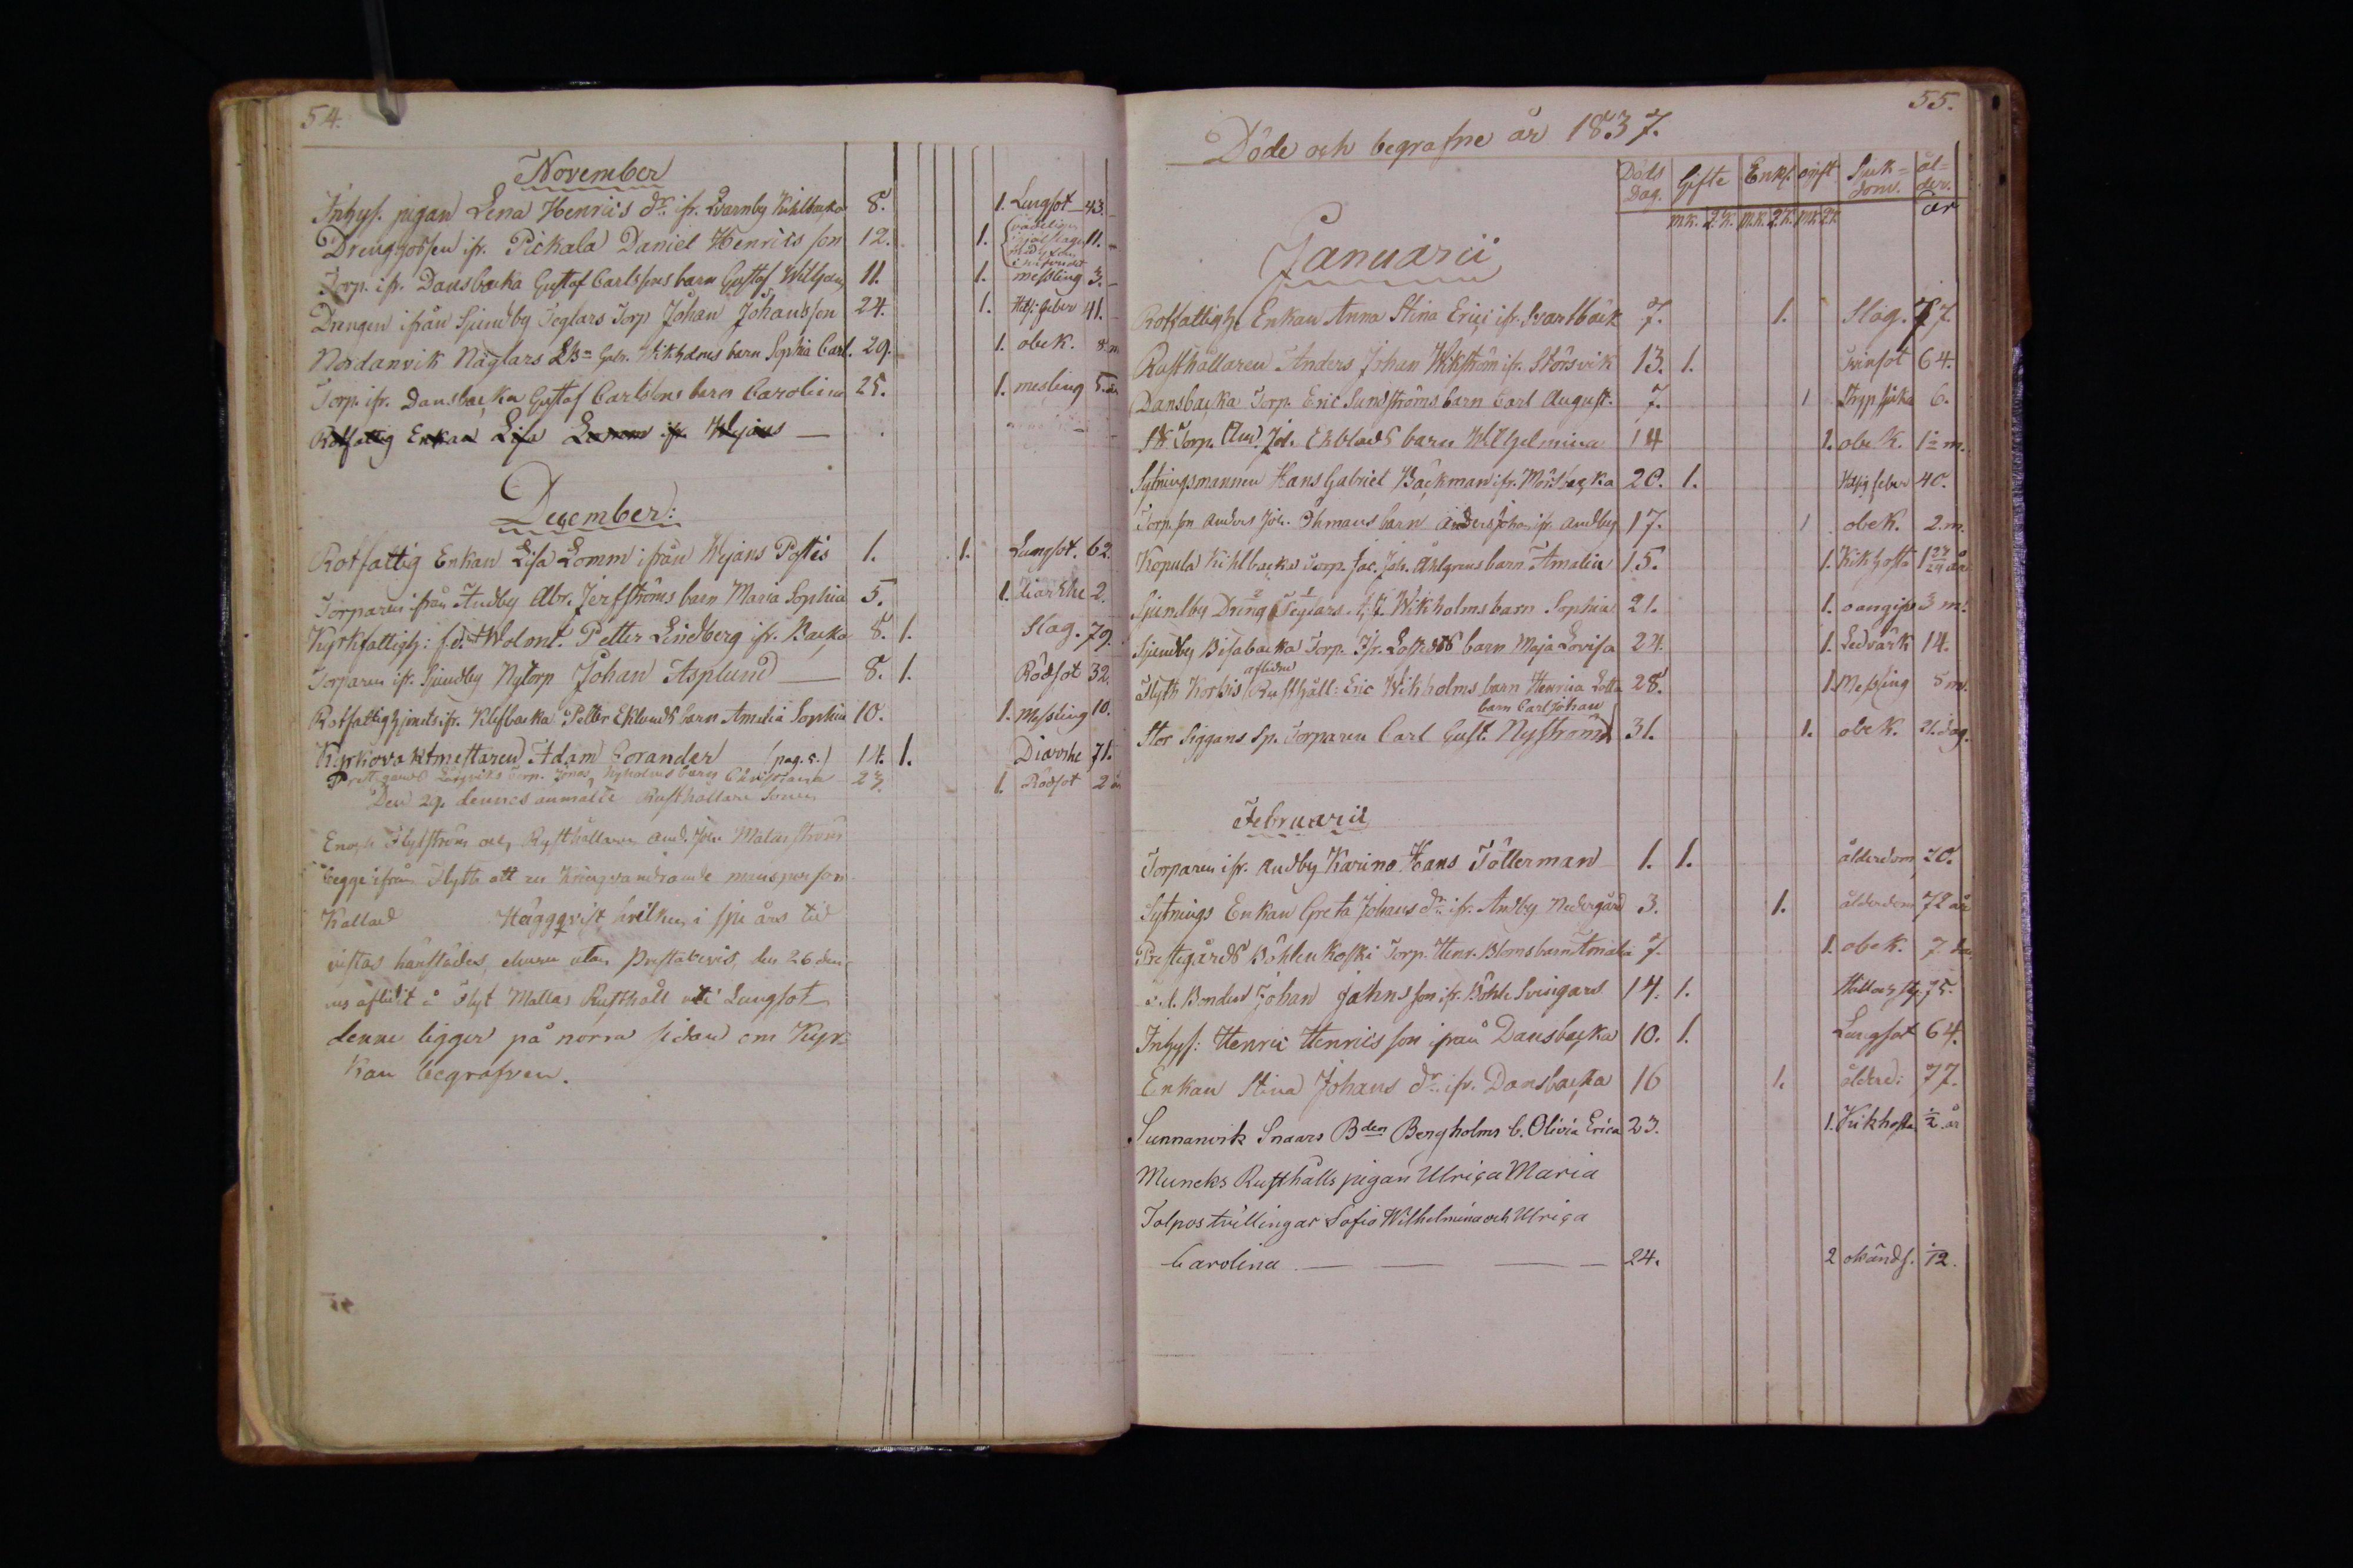 54.
November
Inhys. pigan Lena Henrics dr. ifr. Qvarnby Kihlbacka 8. 1. Lungsot 43.
Drenggossen ifr. Pickala Daniel Henrics son 12. 1. 11.
Torp. ifr. Dansbacka Gustaf Carlssons barn Gustaf Wilhelm 11. 1. messling 3.
Drengen ifrån Sjundby Teglars Torp Johan Johansson 24. 1. Hets. feber 41.
Nordanvik Näglars barn Sophia Carl. 29. 1. obek. 8 m
Torp. ifr. Dansbacka Gustaf Carlssons barn Carolina 25. 1. mesling 5.
Rotfattig Enkan Lisa Lomm ifr. Wejans —
December:
Rotfattig Enkan Lisa Lomm ifrån Wejans Postis 1. 1. Lungsot. 62.
Torparen ifrån Andby Abr. Jerfströms barn Maria Sophia 5. 1. Diarrhe 2.
Kyrkfattigh: f.d. Wolont. Petter Lindberg ifr. Backa 8. 1. Slag. 79.
Torparen ifr. Sjundby Nytorp Johan Asplund — 8. 1. Rödsot 32.
Rotfattigh: ifr. Klisbacka Petter Eklunds barn Amalia Sophia 10. 1. Messling 10.
Kyrkovaktmestaren Adam Gorander (pag. 5.) 14. 1. Diarrhe 71.
Prestgårds Torp. Jonas Nyholms barn Christiana 27. 1. Rödsot 2
Den 29 dennes anmälte Rusthållare Sonen
Enoch Flytström och Rusthållaren And. Joh. Malmström
begge ifrån Flyt att en Kringvandrande mansperson
Kallad Häggqvist hvilken i sju års tid
vistas härstädes, ehuru utan Prestabevis, den 26 den-
nes aflidit å Flyt Mattas Rusthåll uti Lungsot
denne ligger på norra sidan om Kyr-
kan begrafven.
55.
Döde och begrafne år 1837.
Döds Dag. Gifte Enkl. ogift Sjuk-dom. ål-der.
m.k. q.k. m.k. q.k. m.k. q.k. år
Januarii
Rotfattigh: Enkan Anna Stina Erici ifr. Svartbäck 7. 1. Slag. 77.
Rusthållaren Anders Johan Wikström ifr. Störsvik 13. 1. Tvinsot 64.
Dansbacka Torp. Eric Sundströms barn Carl August. 7. 1 Strypsjuka 6.
Torp. And. Joh. Ekblads barn Wilhelmina 14 1. obe.k. 1½ m.
Sytningsmannen Hans Gabriel Bäckman ifr. Mörsbacka 20. 1. Hetsig feber 40.
Torp. son Anders Joh. Öhmans barn Anders Johan ifr. Andby 17. 1 obek. 2. m.
Kopula Kihlbacka Torp. Jac. Joh. Ahlgrens barn Amalia 15. 1. Kikhosta
Sjundby Dreng Teglars Wikholms barn Sophia 21. 1. oangifv. 3 m.
Sjundby Bisabacka Torp. Joh. barn Maja Lovisa 24. 1. Ledvärk 14.
Flyth Korkis aflidne Rusthåll: Eric Wikholms barn Henrica Lotta 28. 1. Messling 8 m.
Stor Siggans Sp. Torparen Carl Gust. Nyström barn Carl Johan 31. 1. obek. 21. dag.
Februarii
Torparen ifr. Andby Karino Hans Tötterman 1. 1. ålderdom 70.
Sytnings Enkan Greta Johans dr. ifr. Andby Nedergård 3. 1. ålderdom 72 år
Prestegårds Böhlen Koski Torp. Henr. Bloms barn Amalia 7. 1. obek. 7.
Bonden Johan Jahnsson ifr. Böhle Svingars 14. 1. 75.
Inhys: Henric Henrics son ifrån Dansbacka 10. 1. Lungsot 64.
Enkan Stina Johans dr. ifr. Dansbacka 16 1. ålderd: 77.
Sunnanvik Snaars Bden Bergholms b. Olivia Erica 23. 1. Kikhosta ½ år
Muncks Rusthålls pigan Ulrica Maria
Tolpos tvillingar Sofia Wilhelmina och Ulrica
Carolina — — — — 24. 2 okänds. 1/12.